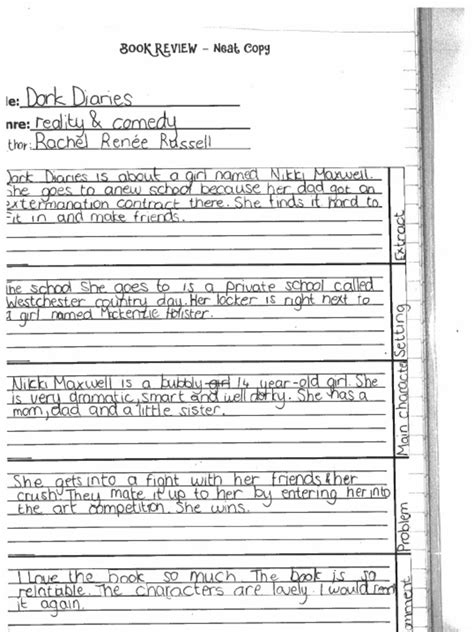 BOOK REVIEW - Neat Copy
le: Dork Diaries
nre: reality & comedy
thor: Rachel Renée Russell
Dork Diaries is about a girl named Nikki Maxwell.
She goes to anew school because her dad got an
extermanation contract there. She finds it hard to
Fit in and make friends.
Extract
The school She goes to is a private school called
Westchester country day. Her locker is right next to
a girl named Mckenzie Holister.
Setting
Nikki Maxwell is a bubbly girl 14 year-old girl. She
is very dramatic, smart and well dorky. She has a
mom, dad and a little sister.
Main characte
She gets into a fight with her friends & her
crush. They make it up to her by entering her into
the art competition. She wins.
Problem
I love the book so much. The book is so
relatable. The characters are lovely. I would read
it again.
omment